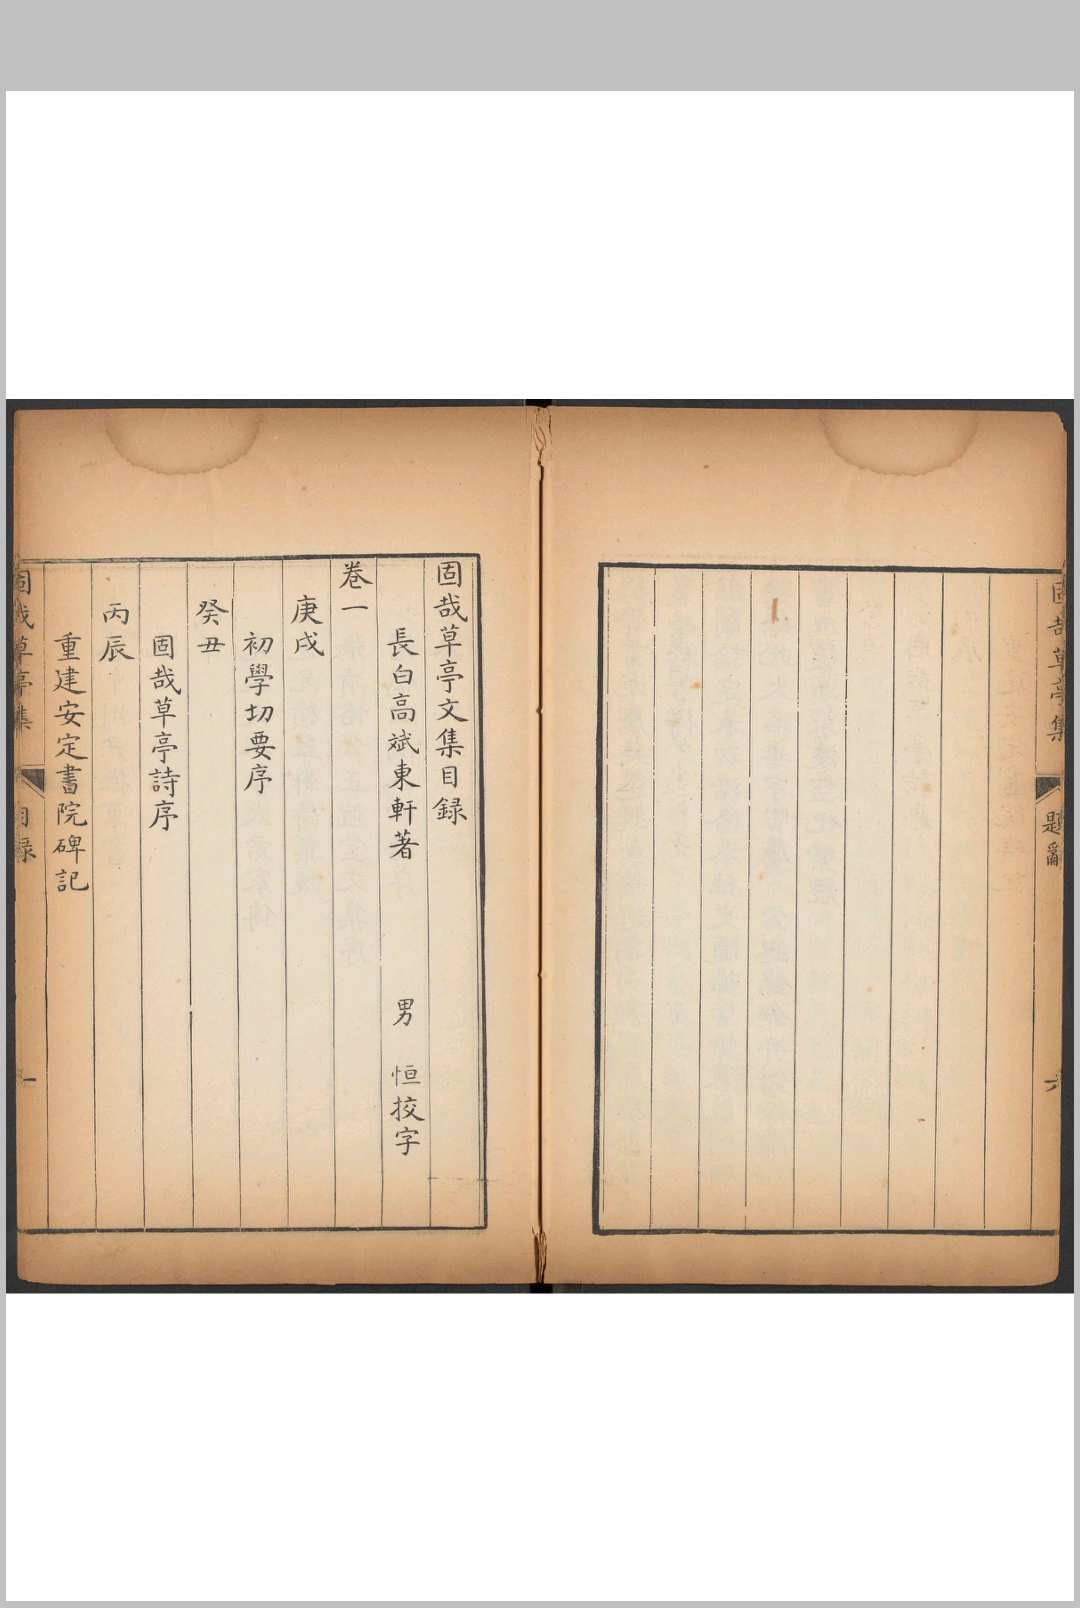 固哉草亭集
題辭
六
固哉草亭文集目録
長白高斌東軒著　男　恒挍字
卷一
庚戌
初學切要序
癸丑
固哉草亭詩序
丙辰
重建安定書院碑記
固哉草亭集
目録
一